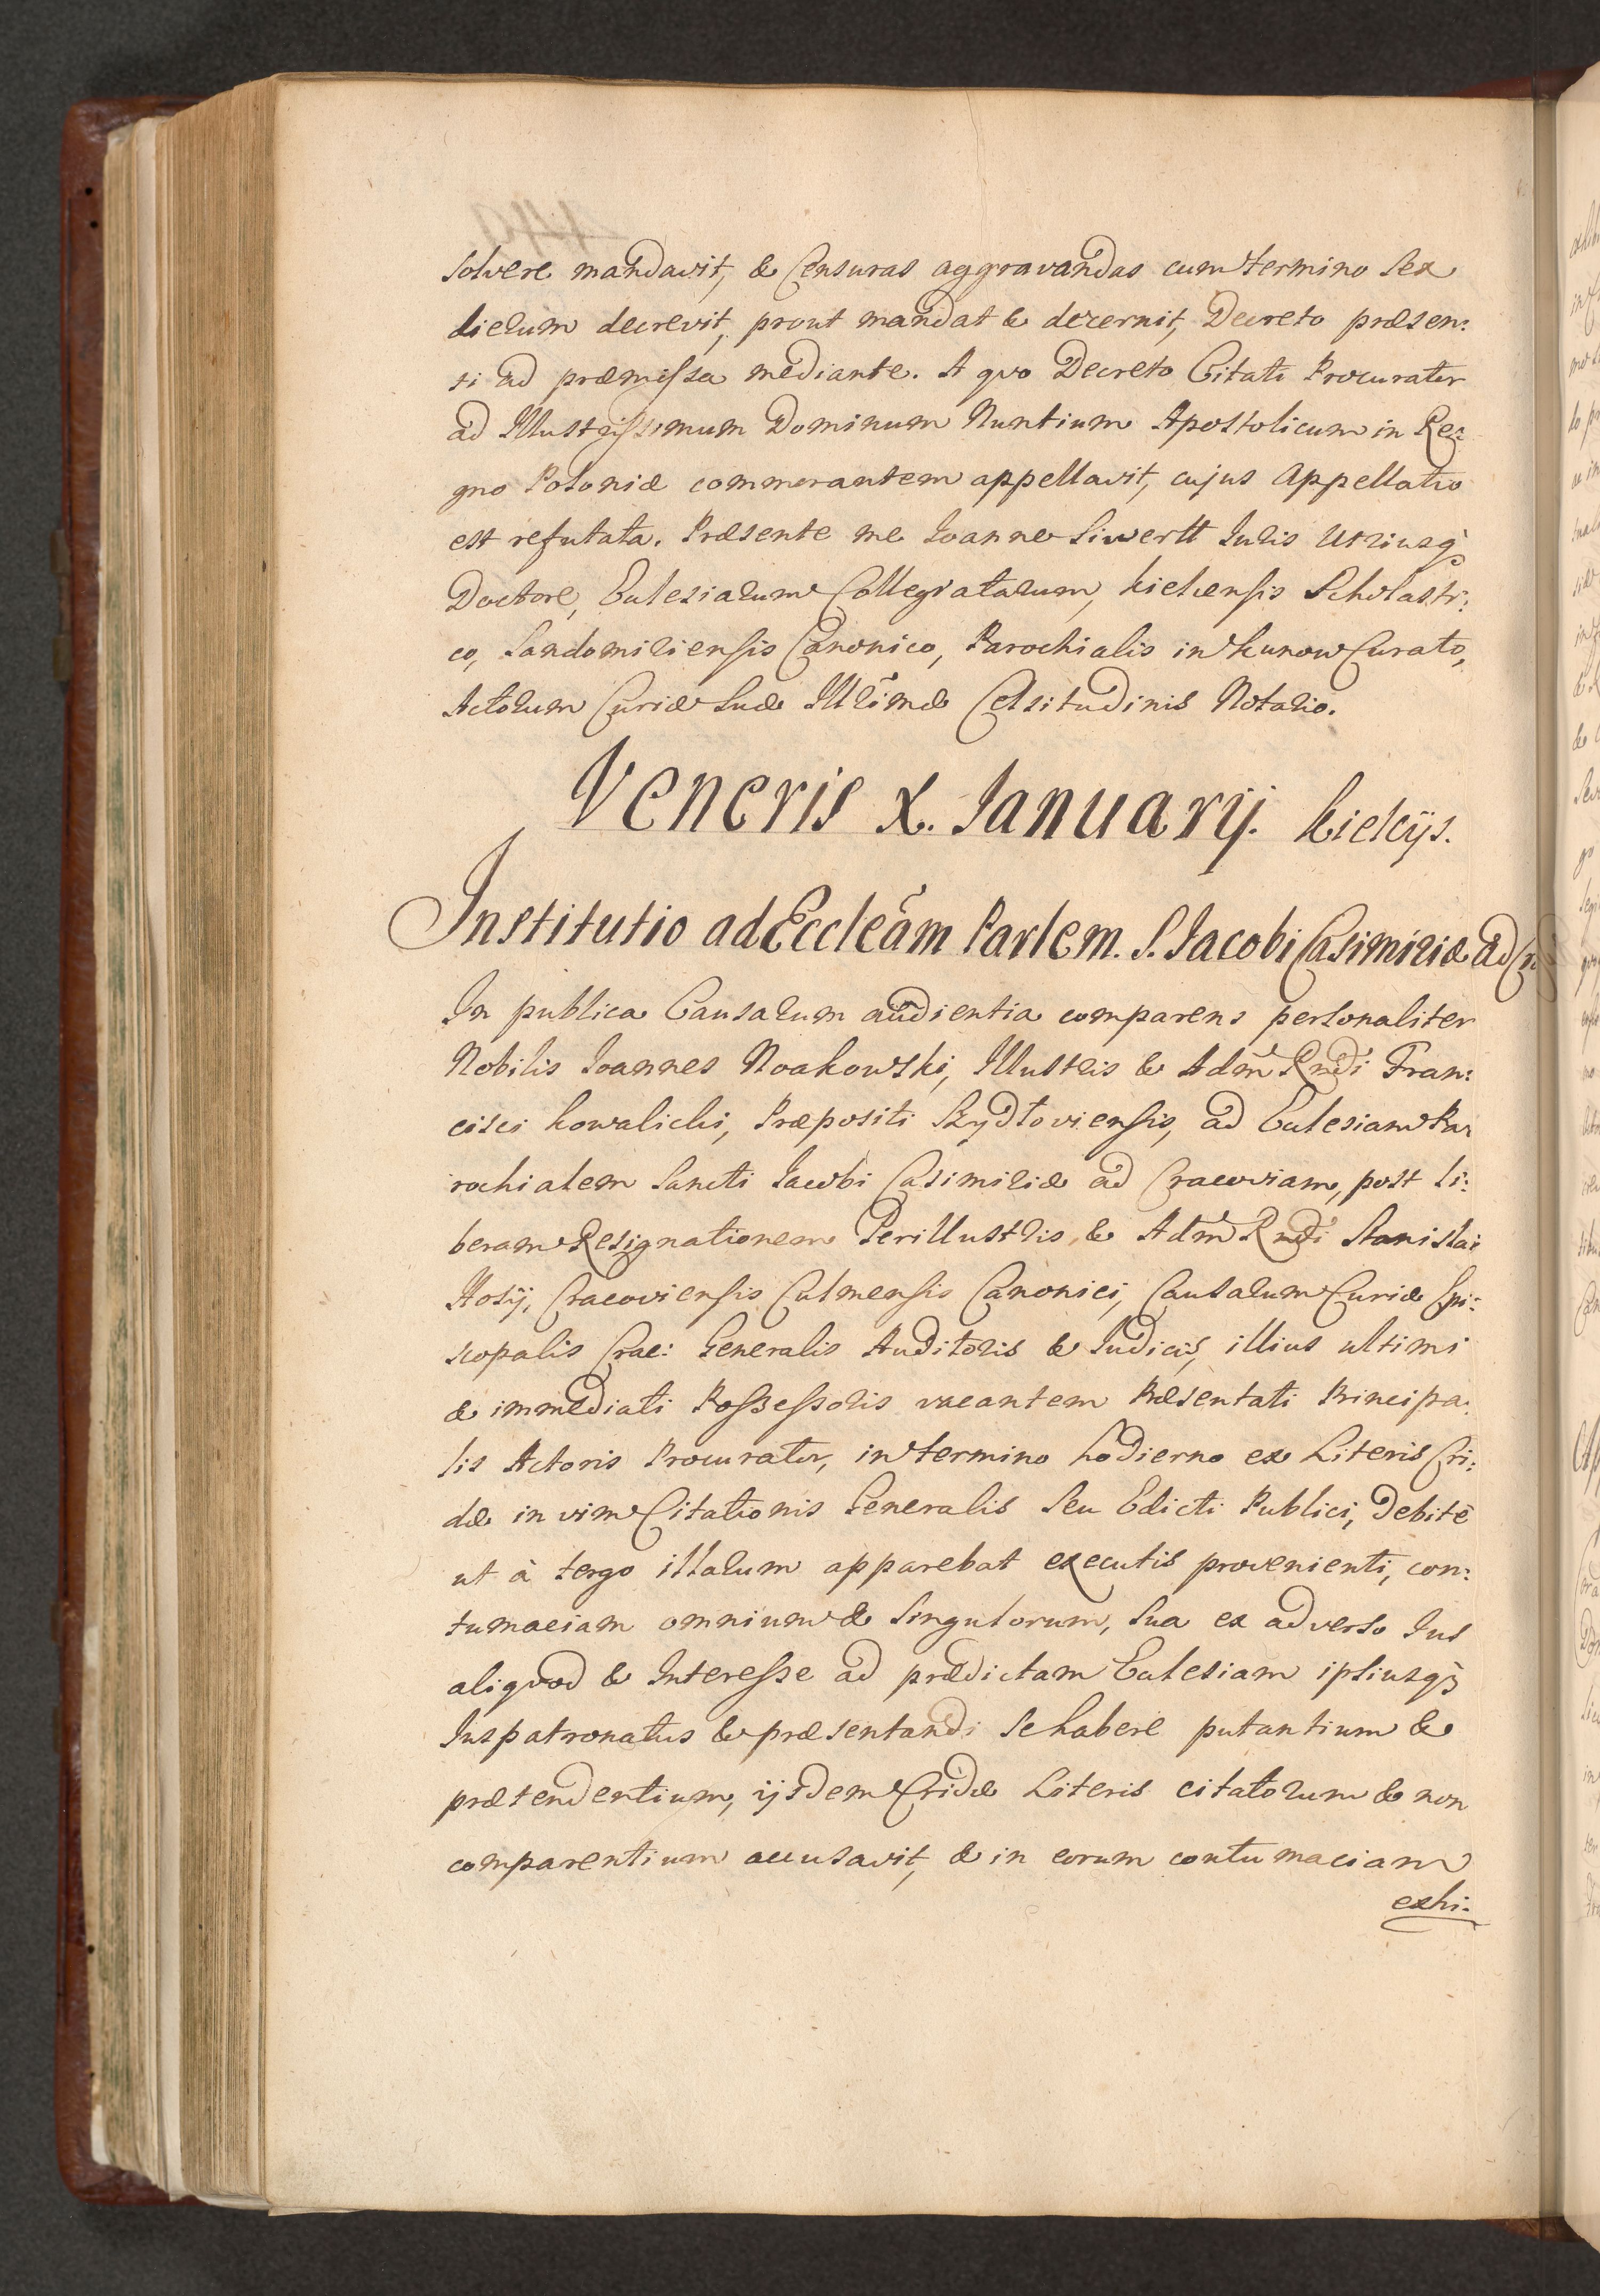 solvere mandavit, & Censuras aggravandas cum termino sex
dierum decrevit, prout mandat & decernit, Decreto præsen:
ti ad præmissa mediante. A quo Decreto Citati Procurator
ad Illustrissimum Dominum Nuntium Apostolicum in Re:
gno Poloniæ commorantem appellavit, cujus Appellatio
est refutata. Præsente me Ioanne Siwertt Iuris Utriusq;
Doctore, Ecclesiarum Collegiatarum, Kielcensis Scholasti:
co, Sandomiriensis Canonico, Parochialis in Kunow Curato,
Actorum Curiæ Suæ Illr̃imæ Celsitudinis Notario.
Veneris X. Ianuarij. Kielcijs.
Institutio ad Eccleãm Parlem. S. Iacobi Casimiriæ ad
In publica Causarum audientia comparens personaliter
Nobilis Ioannes Noakowski, Illustris & Adm̃ Rndi Fran:
cisci Kowalicki, Præpositi Szydłoviensis, ad Ecclesiam Pa:
rochialem Sancti Iacobi Casimiriæ ad Cracoviam, post li:
beram Resignationem Perillustris & Adm̃ Rndi Stanislai
Hosij, Cracoviensis Culmensis Canonici, Causarum Curiæ Epi:
scopalis Crac: Generalis Auditoris & Iudicis, illius ultimi
& immediati Possessoris vacantem Præsentati Principa:
lis Actoris Procurator, in termino hodierno ex Literis Cri:
dæ in vim Citationis Generalis Seu Edicti Publici, debitè
ut à tergo illarum apparebat executis provenienti, con:
tumaciam omnium & singulorum, sua ex adverso Ius
aliquod & Interesse ad prædictam Ecclesiam ipsiusq;
Iuspatronatus & præsentandi se habere putantium &
prætendentium, ijsdem Cridæ Literis citatorum & non
comparentium accusavit, & in eorum contumaciam
exhi: